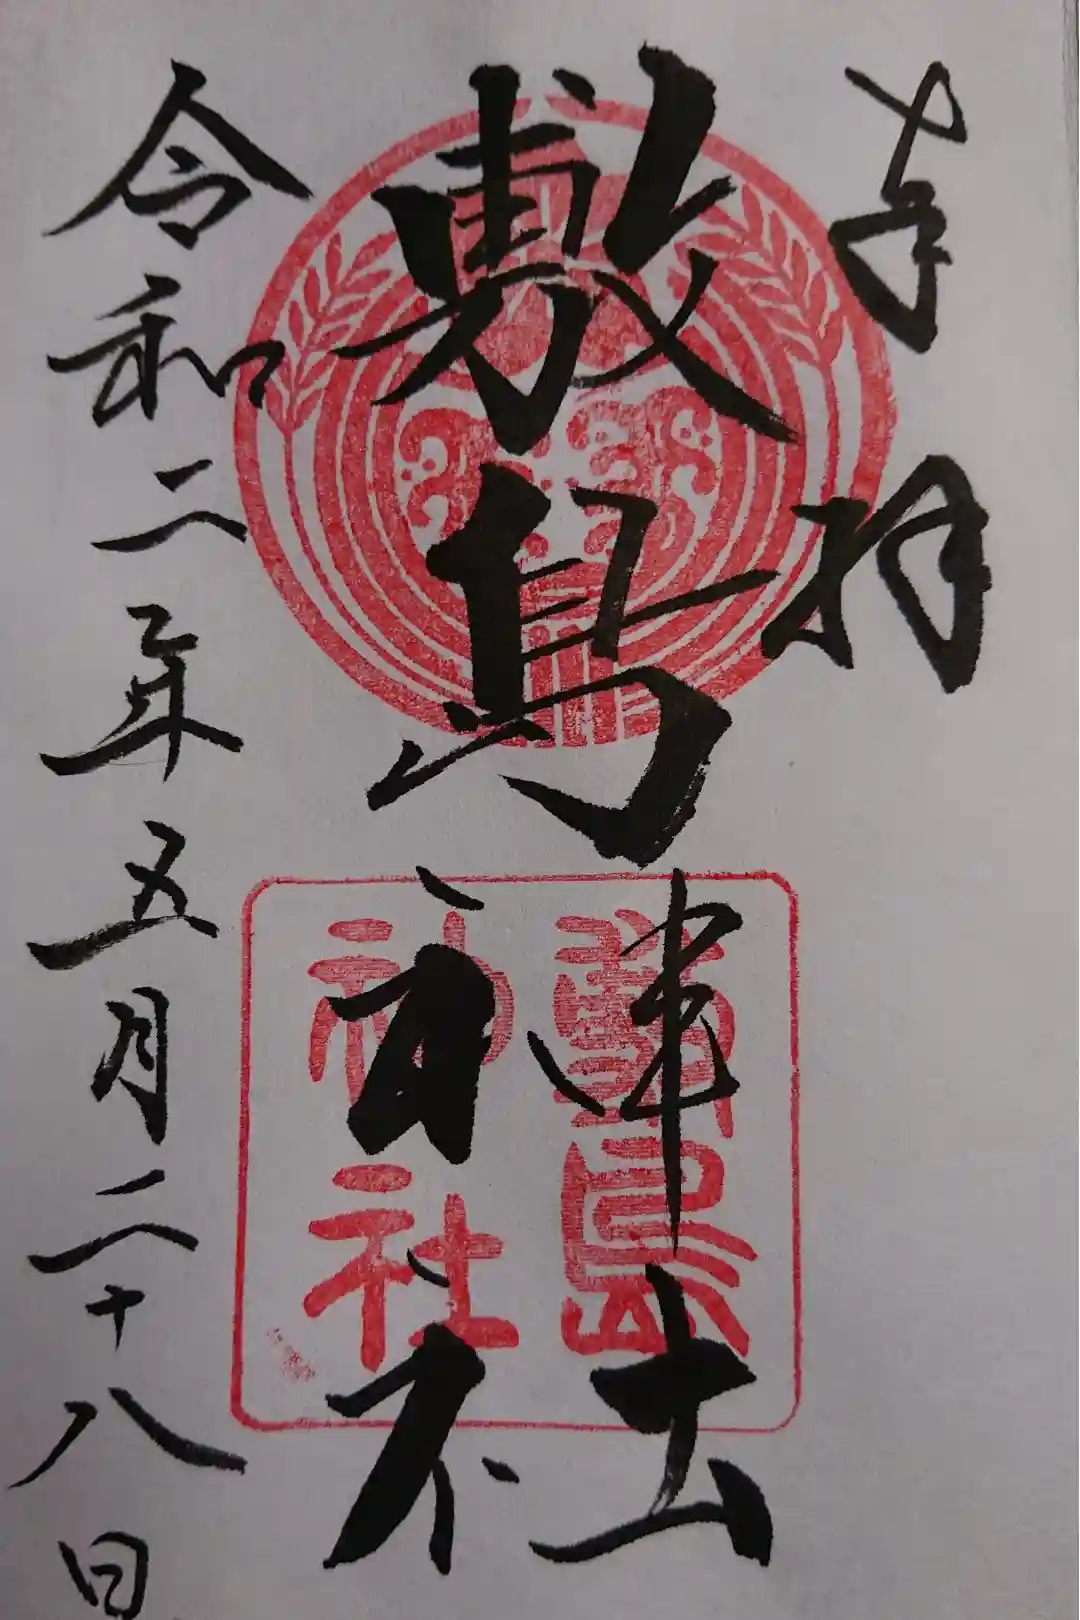 奉拝
敷島神社
令和二年五月二十八日
敷島
神社